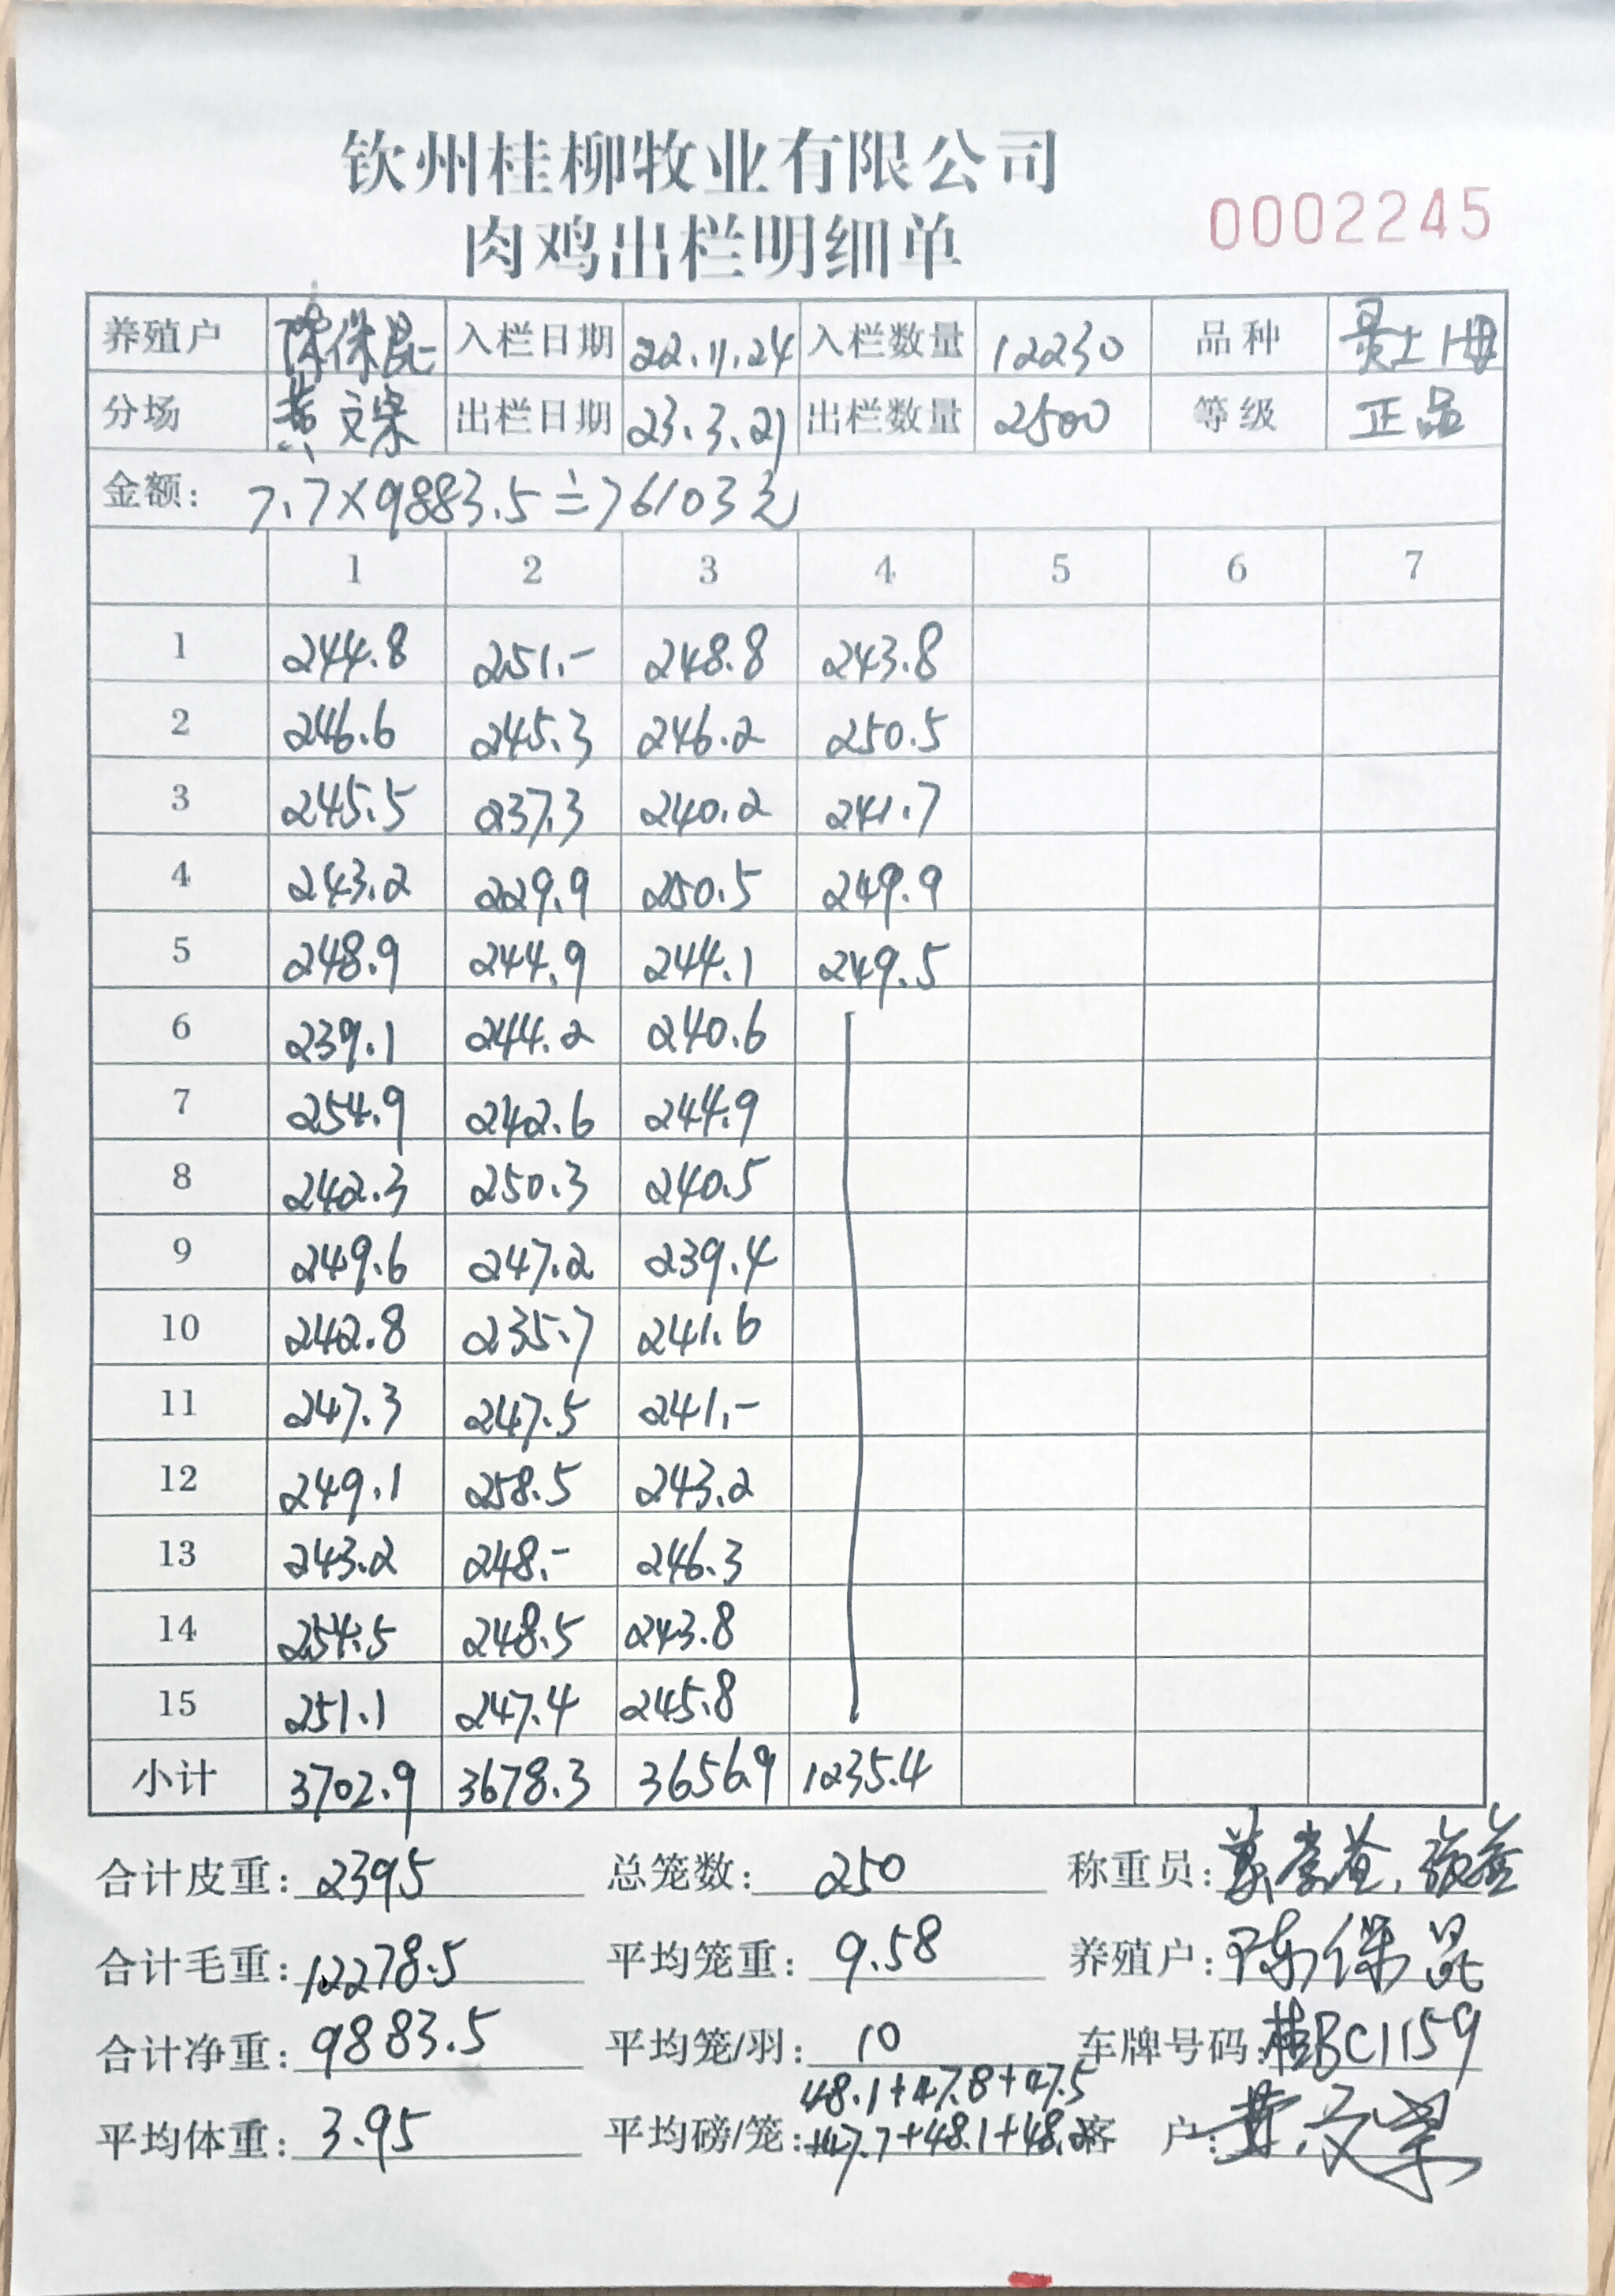 钦州桂柳牧业有限公司
肉鸡出栏明细单
0002245
养殖户 陈保昆 入栏日期 22.11.24 入栏数量 12230 品种
分场 黄文 出栏日期 23.3.21 出栏数量 2500 等级 正品
金额: 7.7×9883.5≐76103元
1 2 3 4 5 6 7
1 244.8 251.- 248.8 243.8
2 246.6 245.3 246.2 250.5
3 245.5 237.3 240.2 241.7
4 243.2 229.9 250.5 249.9
5 248.9 244.9 244.1 249.5
6 239.1 244.2 240.6
7 254.9 242.6 244.9
8 242.3 250.3 240.5
9 249.6 247.2 239.4
10 242.8 235.7 241.6
11 247.3 247.5 241.-
12 249.1 258.5 243.2
13 243.2 248.- 246.3
14 254.5 248.5 243.8
15 251.1 247.4 245.8
小计 3702.9 3678.3 3656.9 1235.4
合计皮重: 2395 总笼数: 250 称重员:
合计毛重: 12278.5 平均笼重: 9.58 养殖户: 陈保昆
合计净重: 9883.5 平均笼/羽: 10 车牌号码: 桂BC1159
48.1+47.8+47.5
平均体重: 3.95 平均磅/笼: +47.7+48.1+48.2 客户: 黄文